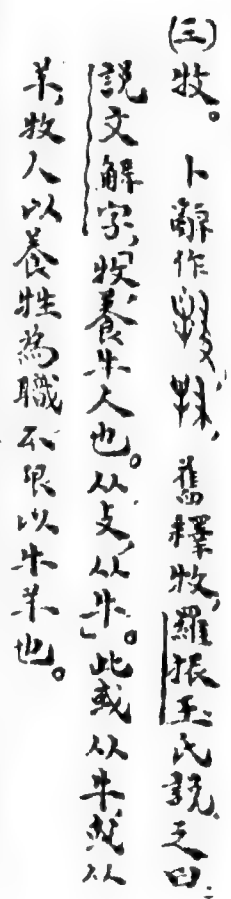 (三)牧。卜辭作，舊釋牧，羅振玉氏説之曰：
説文解字，「牧，養牛人也。从攴，从牛」。此或从牛，或从
羊，牧人以養牲為職，不限以牛羊也。